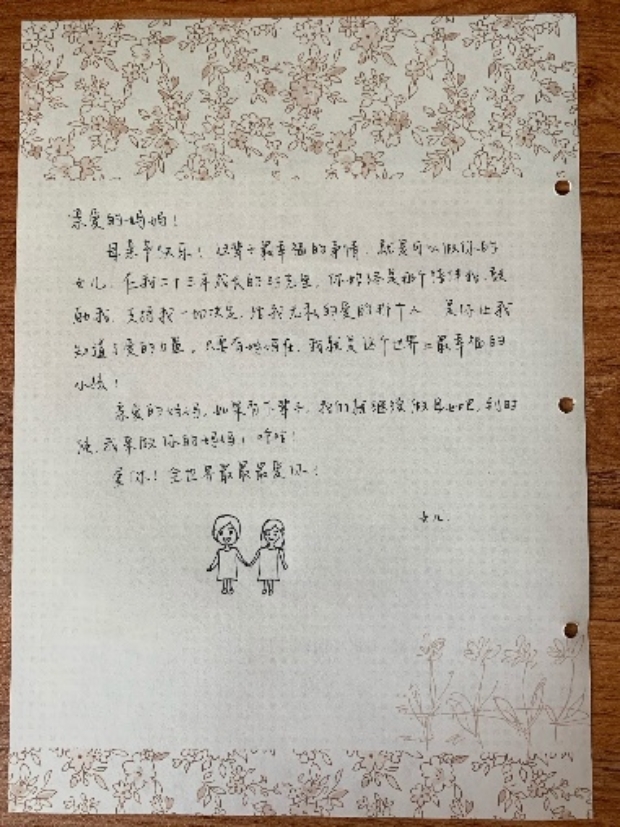 亲爱的妈妈！
母亲节快乐！这辈子最幸福的事情，就是可以做你的
女儿，在我二十三年成长的时光里，你始终是那个陪伴我，鼓
励我，支持我一切决定，给我无私的爱的那个人，是你让我
知道了爱的力量，只要有妈妈在，我就是这个世界上最幸福的
小孩！
亲爱的妈妈，如果有下辈子，我们就继续做母女吧，到时
候，我来做你的妈妈！哈哈！
爱你！全世界最最最爱你！
女儿.